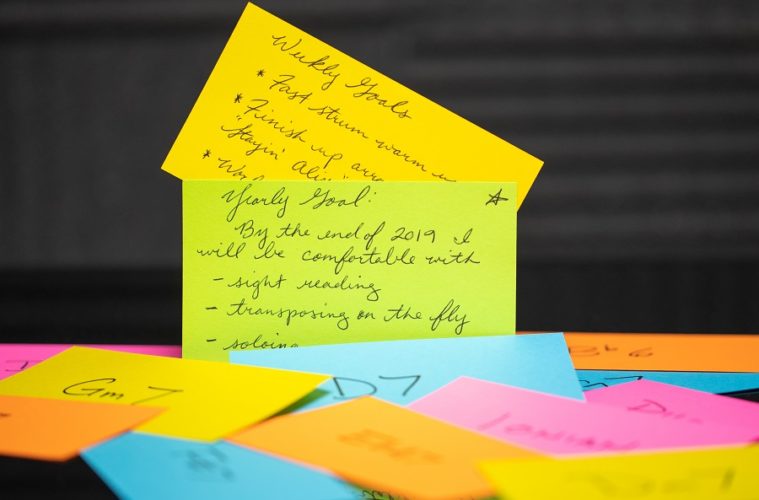 Weekly Goals
* Fast strum warm u
* Finish up arra
"Stayin' Alive"
* Wo
Yearly Goal:
☆
By the end of 2019 I
will be comfortable with
- sight reading
- transposing on the fly
- soloing
Gm7
D7